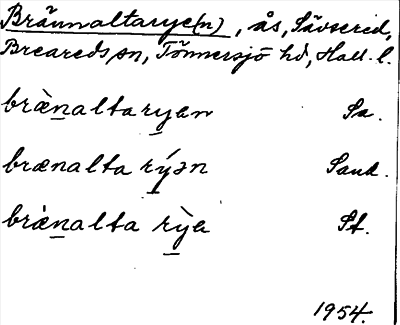 Brännaltarye(n), ås, Sävsered,
Breareds sn, Tönnersjö hd, Hall. l.
bræ̀naltaryen Sa.
brænalta rýən Sand.
brænalta rỳe St.
1954.